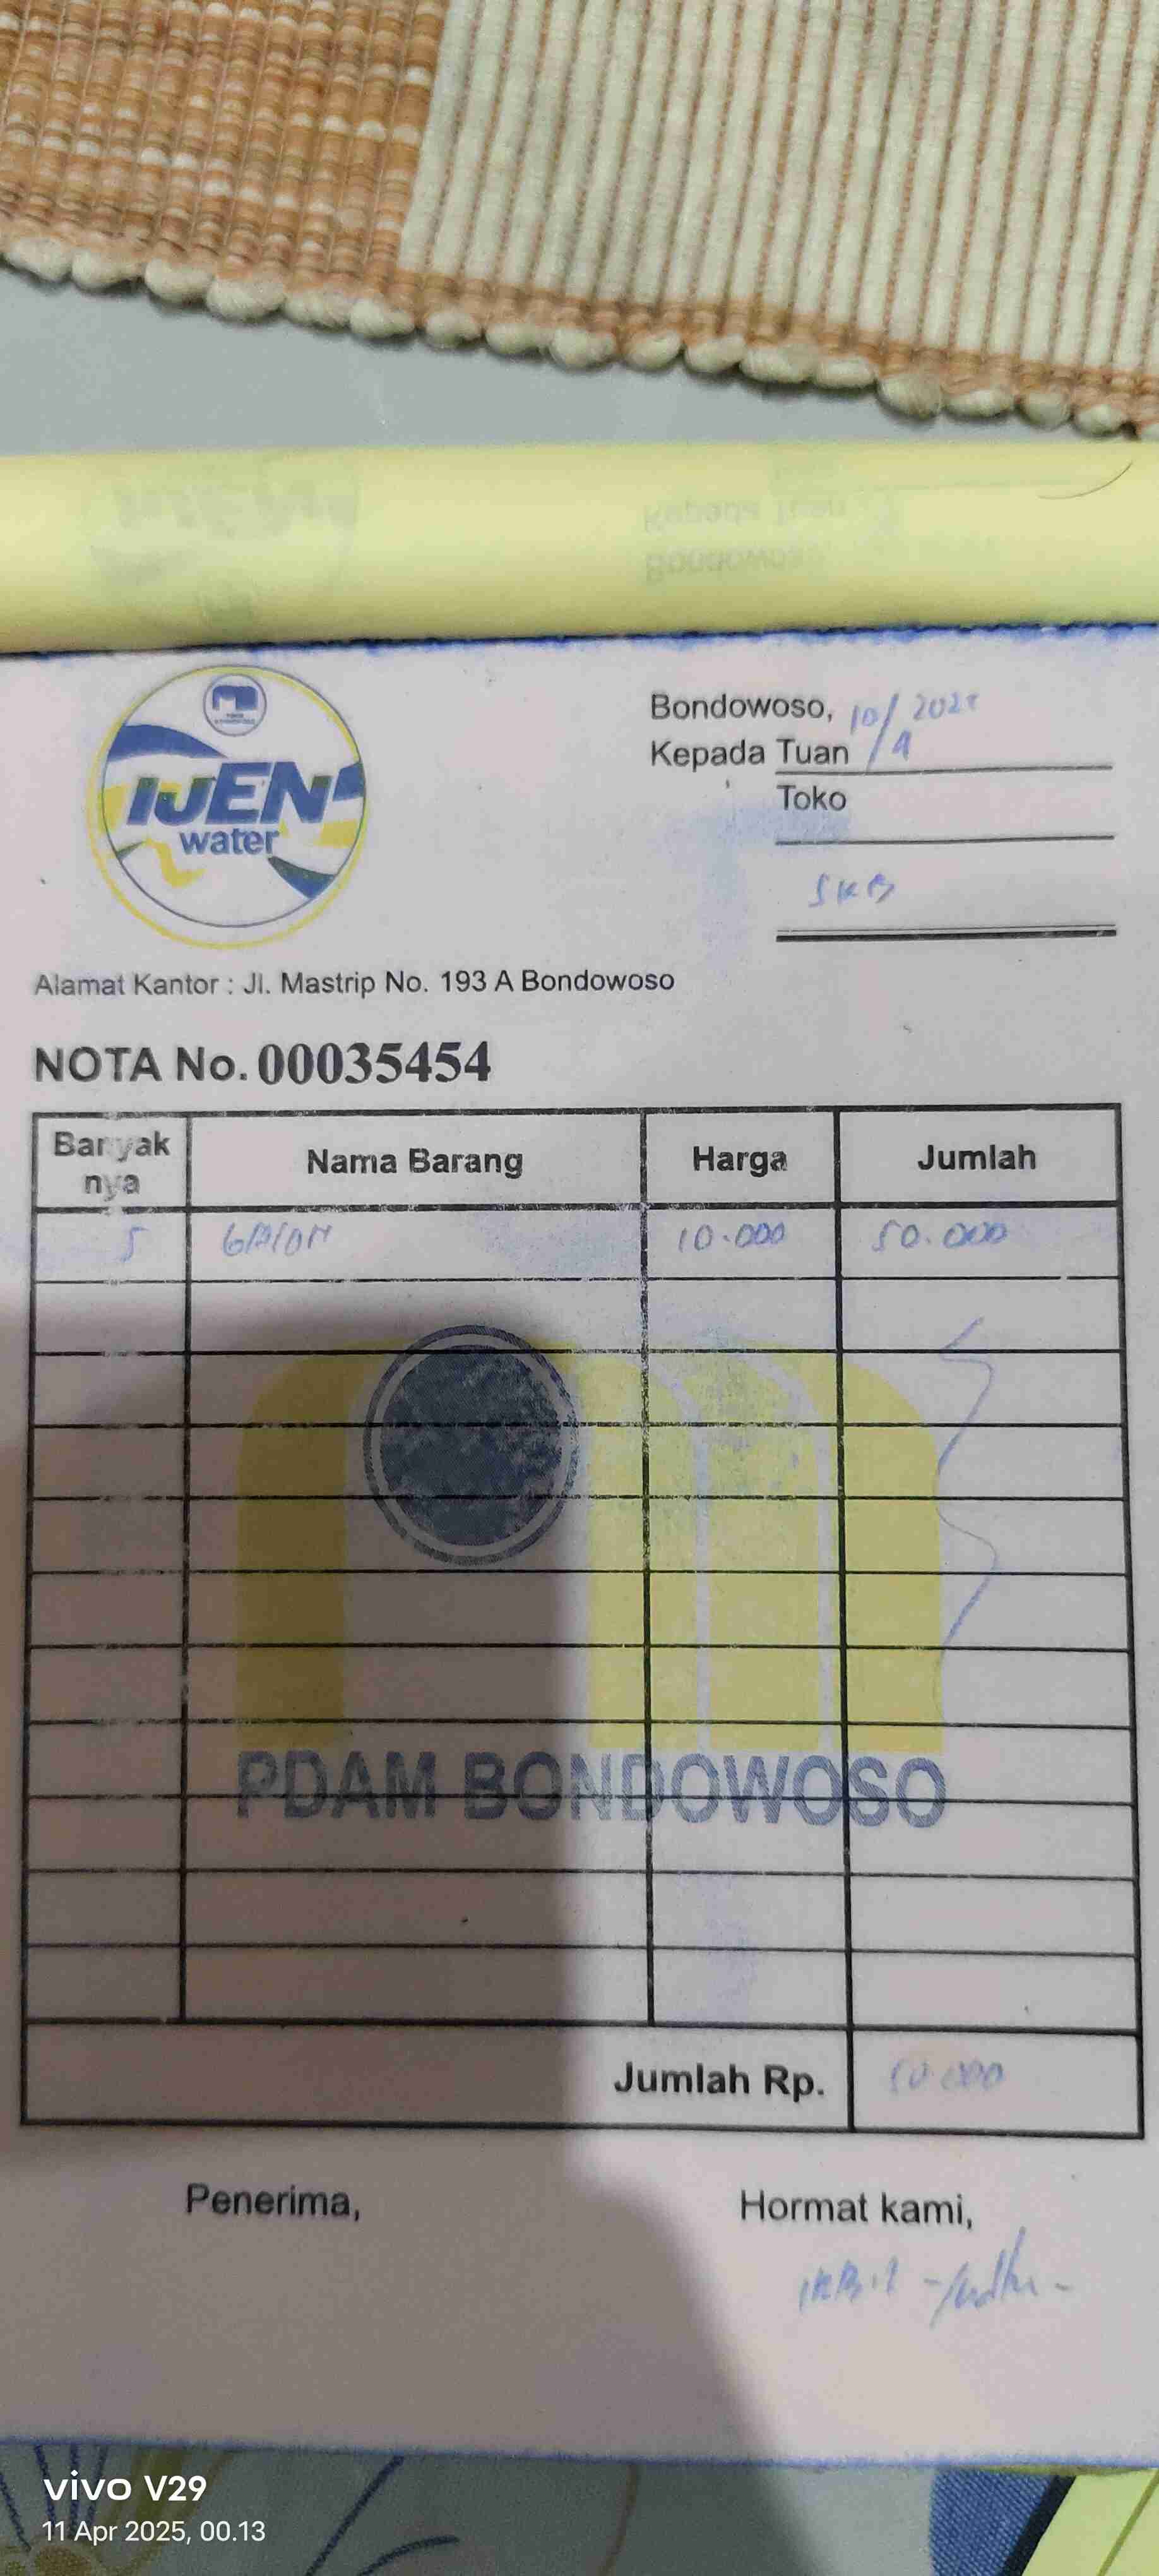 IJEN
water
Bondowoso, 10/4 2025
Kepada Tuan
Toko
SKB
Alamat Kantor : Jl. Mastrip No. 193 A Bondowoso
NOTA No. 00035454
Banyak nya Nama Barang Harga Jumlah
5 GAlON 10.000 50.000
PDAM BONDOWOSO
Jumlah Rp. 50.000
Penerima, Hormat kami,
vivo V29
11 Apr 2025, 00.13